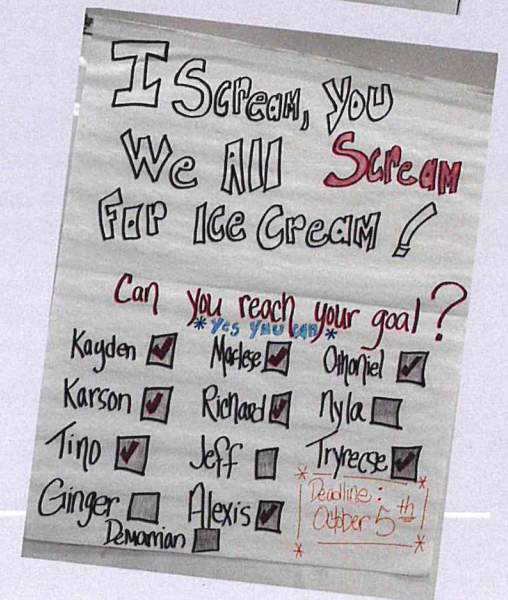 I Scream, you
We All Scream
For Ice Cream!
Can you reach your goal?
*yes you can*
Kayden Marlese Othoniel
Karson Richard Nyla
Tino Jeff Tryrecse
Ginger Alexis
Demarrian
Deadline:
October 5th